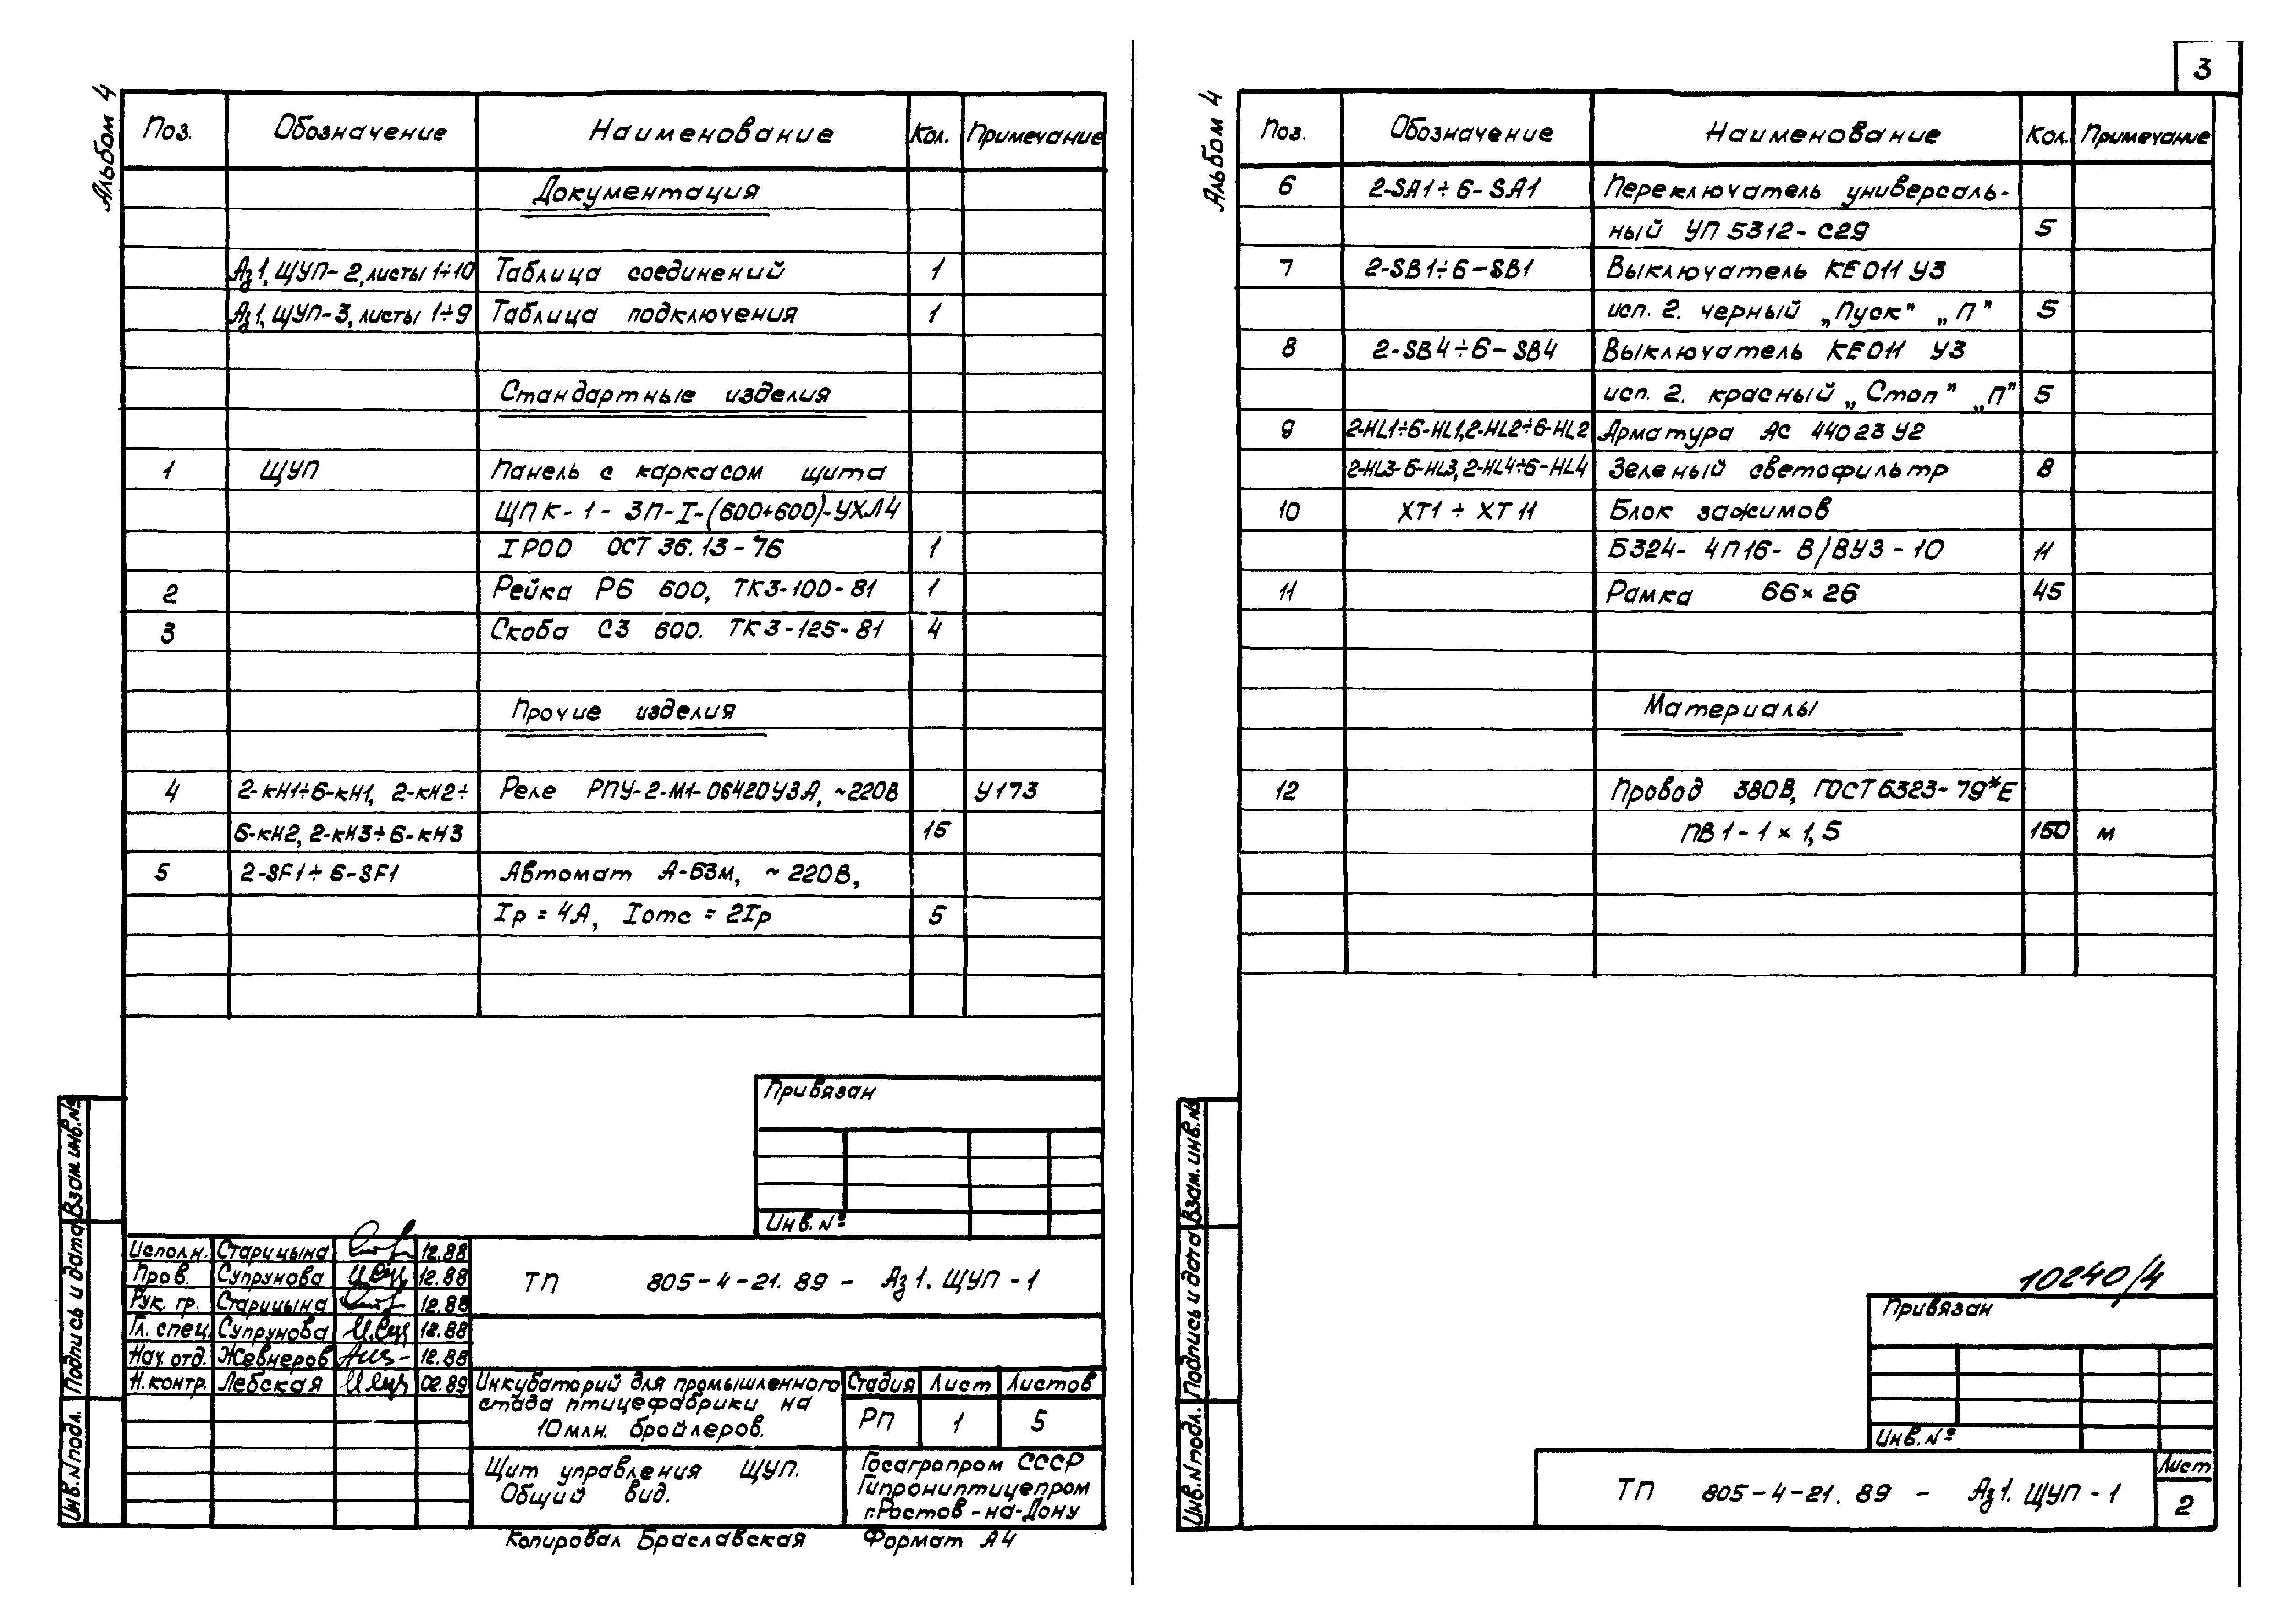 Альбом 4
Поз. Обозначение Наименование Кол. Примечание
Документация
Аз1, ЩУП-2, листы 1÷10 Таблица соединений 1
Аз1, ЩУП-3, листы 1÷9 Таблица подключения 1
Стандартные изделия
1 ЩУП Панель с каркасом щита
ЩПК-1-ЗП-I-(600+600)-УХЛ4
IP00 ОСТ 36.13-76 1
2 Рейка Р6 600, ТК3-100-81 1
3 Скоба С3 600. ТК3-125-81 4
Прочие изделия
4 2-КН1÷6-КН1, 2-КН2÷ Реле РПУ-2-М1-06420У3А, ~220В У173
6-КН2, 2-КН3÷6-КН3 15
5 2-SF1÷6-SF1 Автомат А-63м, ~220В,
Iр = 4А, Iотс = 2Iр 5
Привязан
Инв. №
Взам. инв. №
Подпись и дата
Инв. N подл.
Исполн. Старицына 12.88
Пров. Супрунова 12.88
Рук. гр. Старицына 12.88
Гл. спец. Супрунова 12.88
Нач. отд. Жевнеров 12.88
Н. контр. Лебская 02.89
ТП 805-4-21.89 - Аз1. ЩУП-1
Инкубаторий для промышленного
стада птицефабрики на
10 млн. бройлеров.
Стадия Лист Листов
РП 1 5
Щит управления ЩУП.
Общий вид.
Госагропром СССР
Гипрониптицепром
г. Ростов-на-Дону
Копировал Браславская Формат А4
3
Альбом 4
Поз. Обозначение Наименование Кол. Примечание
6 2-SA1÷6-SA1 Переключатель универсаль-
ный УП 5312-С29 5
7 2-SB1÷6-SB1 Выключатель КЕ011 У3
исп. 2. черный „Пуск" „П" 5
8 2-SB4÷6-SB4 Выключатель КЕ011 У3
исп. 2. красный „Стоп" „П" 5
9 2-HL1÷6-HL1, 2-HL2÷6-HL2 Арматура АС 44023 У2
2-HL3-6-HL3, 2-HL4÷6-HL4 Зеленый светофильтр 8
10 XT1 ÷ XT11 Блок зажимов
Б324-4П16-В/ВУ3-10 11
11 Рамка 66×26 45
Материалы
12 Провод 380В, ГОСТ 6323-79*Е
ПВ1-1×1,5 150 м
10240/4
Привязан
Инв. №
Взам. инв. №
Подпись и дата
Инв. N подл.
ТП 805-4-21.89 - Аз1. ЩУП-1
Лист
2